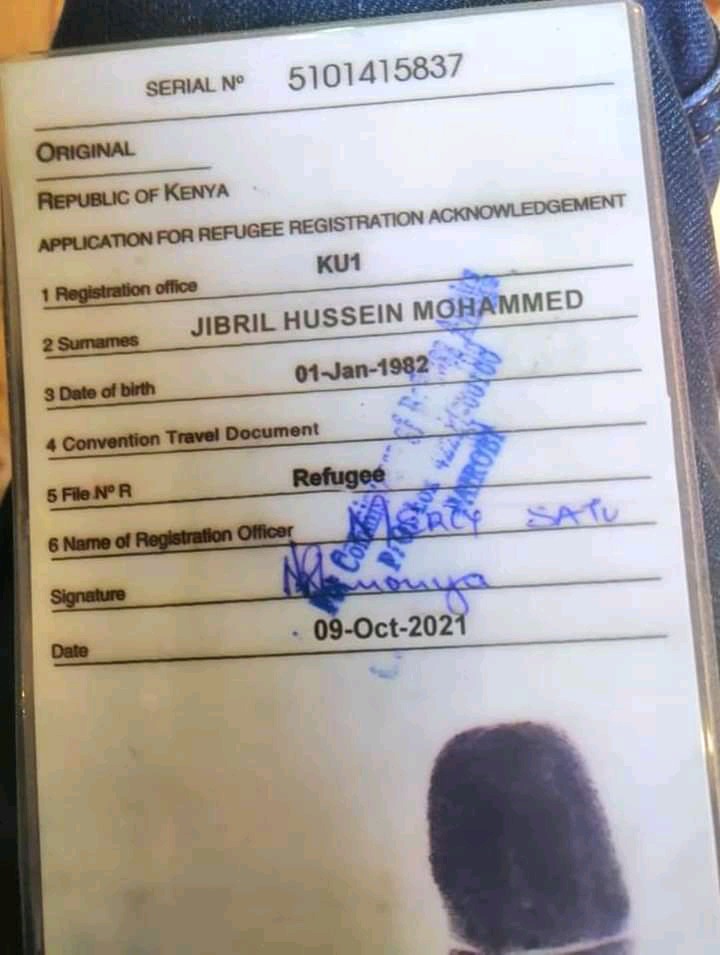 SERIAL Nº 5101415837
ORIGINAL
REPUBLIC OF KENYA
APPLICATION FOR REFUGEE REGISTRATION ACKNOWLEDGEMENT
1 Registration office KU1
2 Surnames JIBRIL HUSSEIN MOHAMMED
3 Date of birth 01-Jan-1982
4 Convention Travel Document
5 File Nº R Refugee
6 Name of Registration Officer MERCY SATU
Signature
Date 09-Oct-2021
NAIROBI